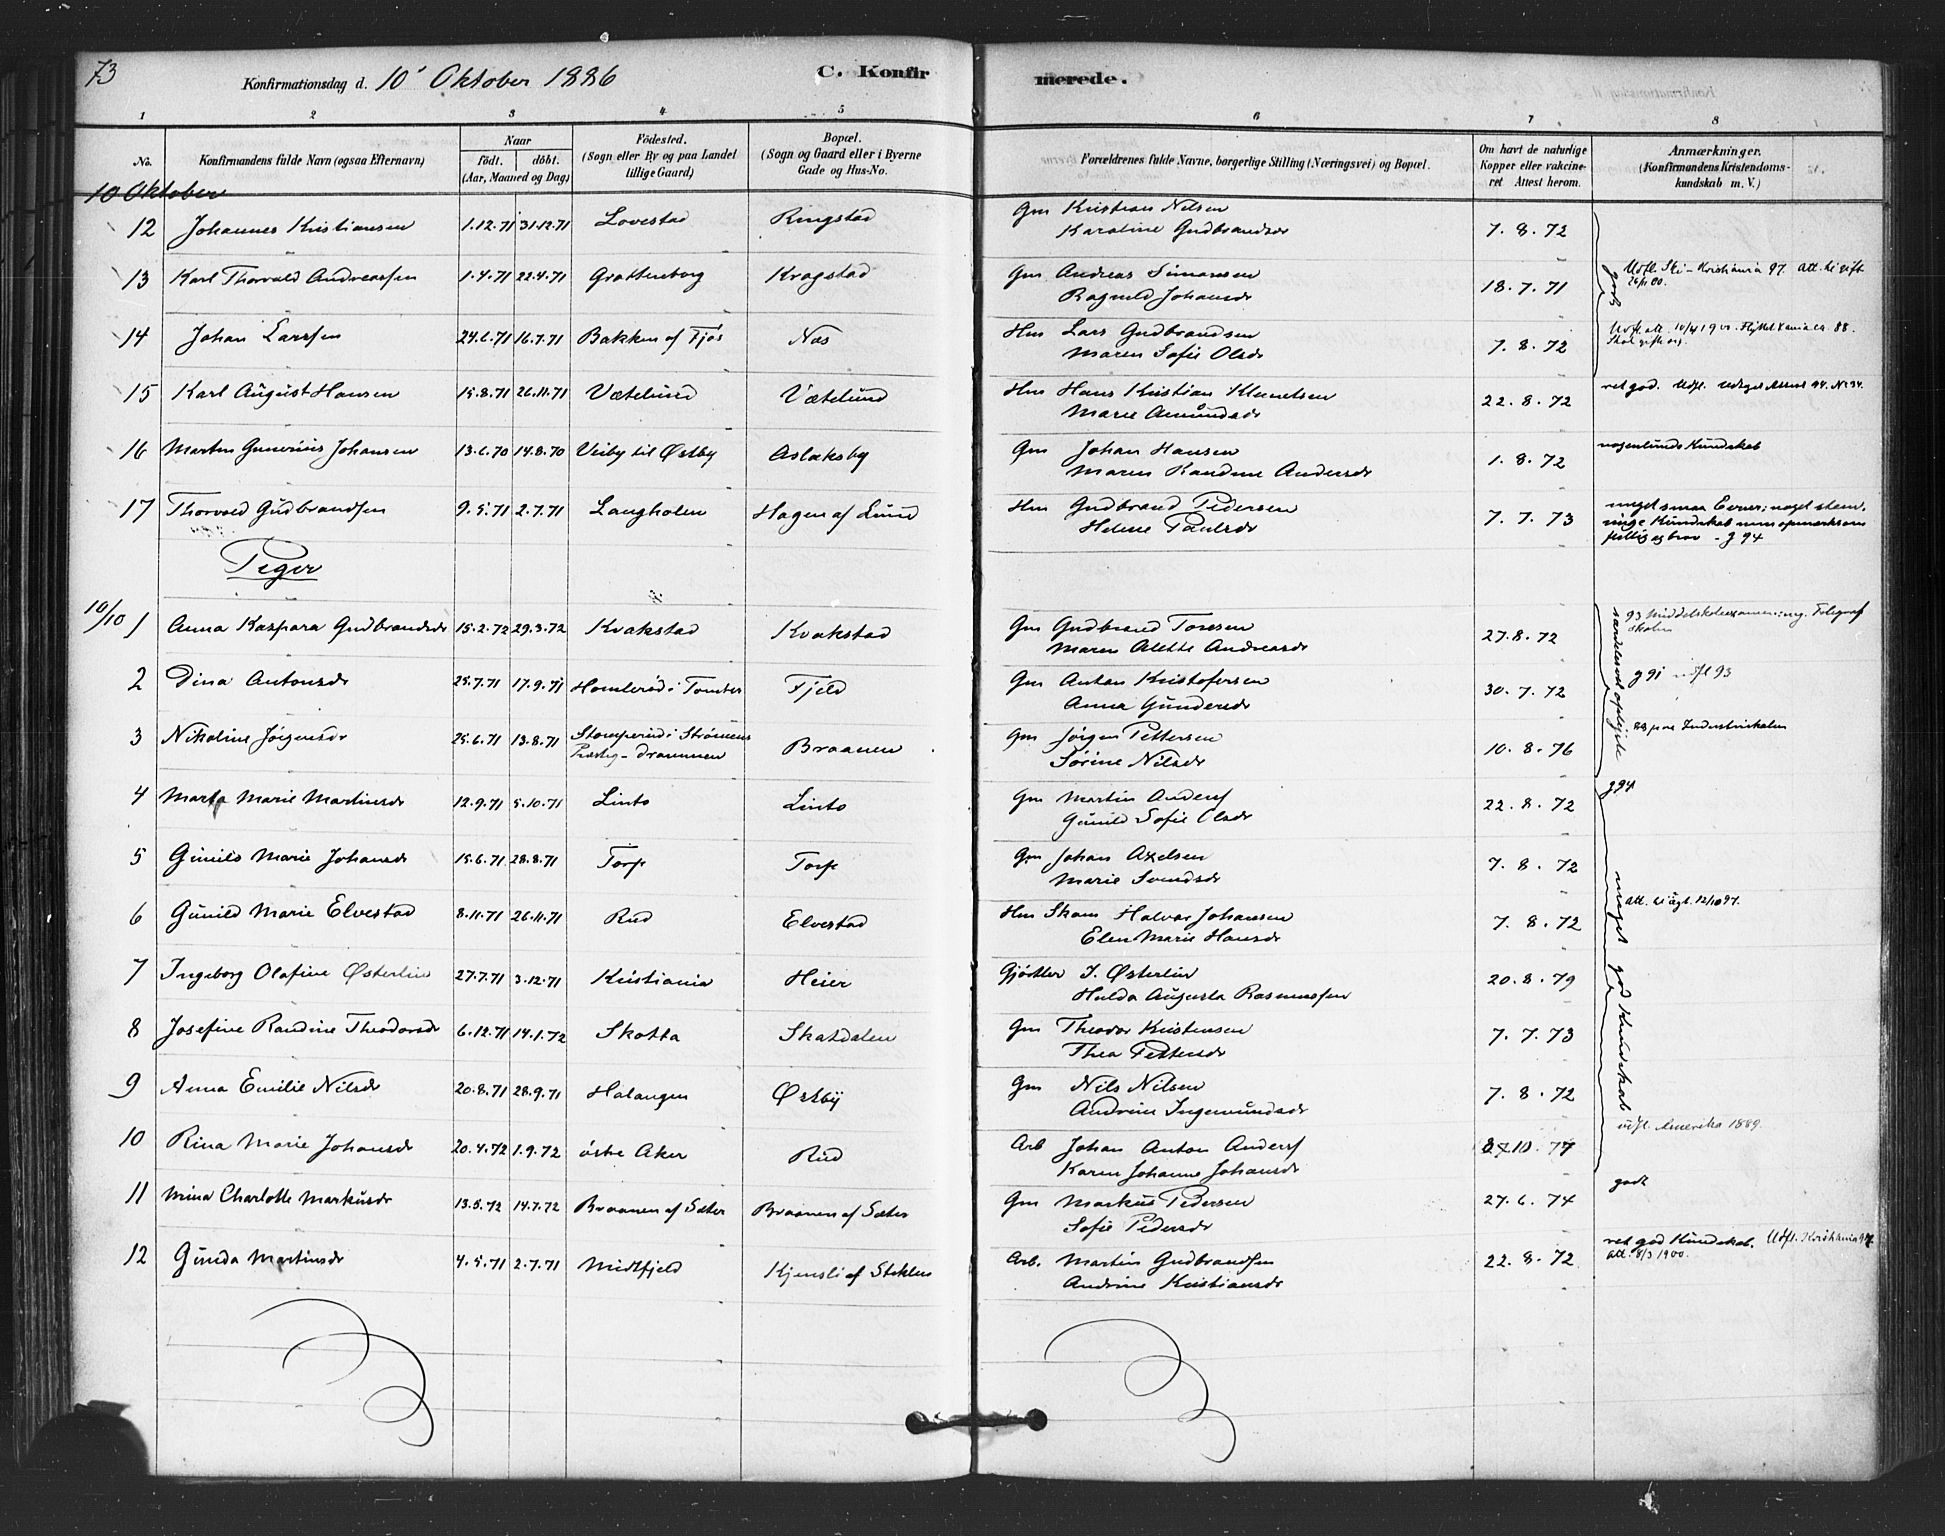 73
Konfirmationsdag d. 10 Oktober 1886
C. Konfirmerede.
1 2 3 4 5 6 7 8
No.
Konfirmandens fulde Navn (ogsaa Efternavn)
Naar
født. døbt.
(Aar, Maaned og Dag)
Fødested.
(Sogn eller By og paa Landet
tillige Gaard)
Bopæl.
(Sogn og Gaard eller i Byerne
Gade og Hus-No.
Forældrenes fulde Navne, borgerlige Stilling (Næringsvei) og Bopæl.
Om havt de naturlige
Kopper eller vakcine-
ret Attest herom.
Anmærkninger.
(Konfirmandens Kristendoms-
kundskab m. V.)
10 Oktober
12 Johannes Kristiansen 1.12.71 31.12.71 Lovestad Ringstad Gm Kristian Nilsen 7.8.72
Karoline Gudbrandsdr
13 Karl Thorvald Andreassen 1.4.71 22.4.71 Grottenborg Kragstad Gm Andreas Simensen 18.7.71 godt Udfl. Ski - Kristiania 97. Att. til gift
Ragnild Johansdr
14 Johan Larssen 24.6.71 16.7.71 Bakken af Fjøs Næs Hm Lars Gudbrandsen 7.8.72
Maren Sofie Olsdr
15 Karl August Hansen 15.8.71 26.11.71 Vætelund Vætelund Hm Hans Kristian Klemetsen 22.8.72 ret god.
Marie Amundsdr
16 Marten Gunerius Johansen 13.6.70 14.8.70 Veiby til Østby Aslaksby Gm Johan Hansen 1.8.72 nogenlunde Kundskab
Maren Randine Andersdr
17 Thorvald Gudbrandsen 9.5.71 2.7.71 Langholen Hagen af Lund Hm Gudbrand Pedersen 7.7.73 meget smaa Evner; noget
Helene Paulsdr ringe Kundskab men opmærksom
flittig og brav - g 94
Piger
10/10 1 Anna Kaspara Gudbrandsdr 15.2.72 29.3.72 Kvakstad Kvakstad Gm Gudbrand Toresen 27.8.72 93 Middelskoleexamen; ny. Telegraf
Maren Alette Andreasdr skolen
2 Dina Antonsdr 25.7.71 17.9.71 Homlerød i Tomter Fjeld Gm Anton Kristofersen 30.7.72 g 91 udfl 93
Anna Gundersdr
3 Nikoline Jørgensdr 25.6.71 13.8.71 Stomperud i Strømms Braanen Gm Jørgen Pettersen 10.8.76 paa Industriskolen
Præstg - Drammen Sørine Nilsdr
særdeles vel oplyste
4 Marta Marie Martinsdr 12.9.71 5.10.71 Linto Linto Gm Martin Anders 22.8.72 g94
Gunild Sofie Olsdr
5 Gunild Marie Johansdr 15.6.71 28.8.71 Torp Torp Gm Johan Axelsen 7.8.72
Marie Svendsdr
6 Gunild Marie Elvestad 8.11.71 26.11.71 Rud Elvestad Hm Skom Halvor Johansen 7.8.72 att. til ægt. 12/10 97.
Elen Marie Hansdr
7 Ingeborg Olafine Østerlin 27.7.71 3.12.71 Kristiania Heier Gjørtler J. Østerlin 20.8.79
Hulda Augusta Rasmussen
meget god Kundskab
8 Josefine Randine Theodorsdr 6.12.71 14.1.72 Skotta Skatdalen Gm Theodor Kristensen 7.7.73
Thea Pettersdr
9 Anna Emilie Nilsdr 20.8.71 28.9.71 Halangen Østby Gm Nils Nilsen 7.8.72
Andrine Ingemundsdr
10 Rina Marie Johansdr 20.4.72 1.9.72 østre Aker Rud Arb Johan Anton Anders 10.77 udfl. Amerika 1889.
Karen Johanne Johansdr
11 Mina Charlotte Markusdr 13.5.72 14.7.72 Braanen af Sæter Braanen af Sæter Gm Markus Pedersen 27.6.74 godt
Sofie Pedersdr
12 Gunda Martinsdr 4.5.71 2.7.71 Midtfjeld Kjensli af Steklen Arb. Martin Gudbrandsen 22.8.72 ret god Kundskab. Udfl. Kristiania 97
Andrine Kristiansdr Att. 8/3 1900.